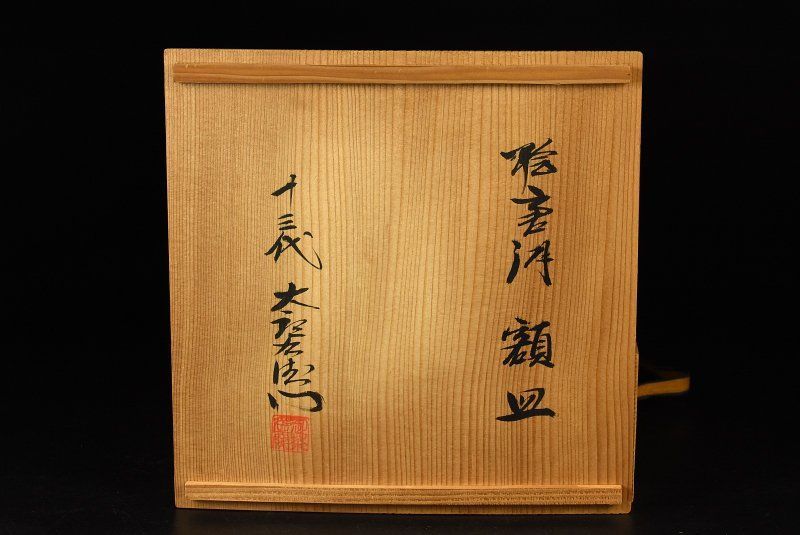 絵唐津 額皿
十三代 太郎右衛門